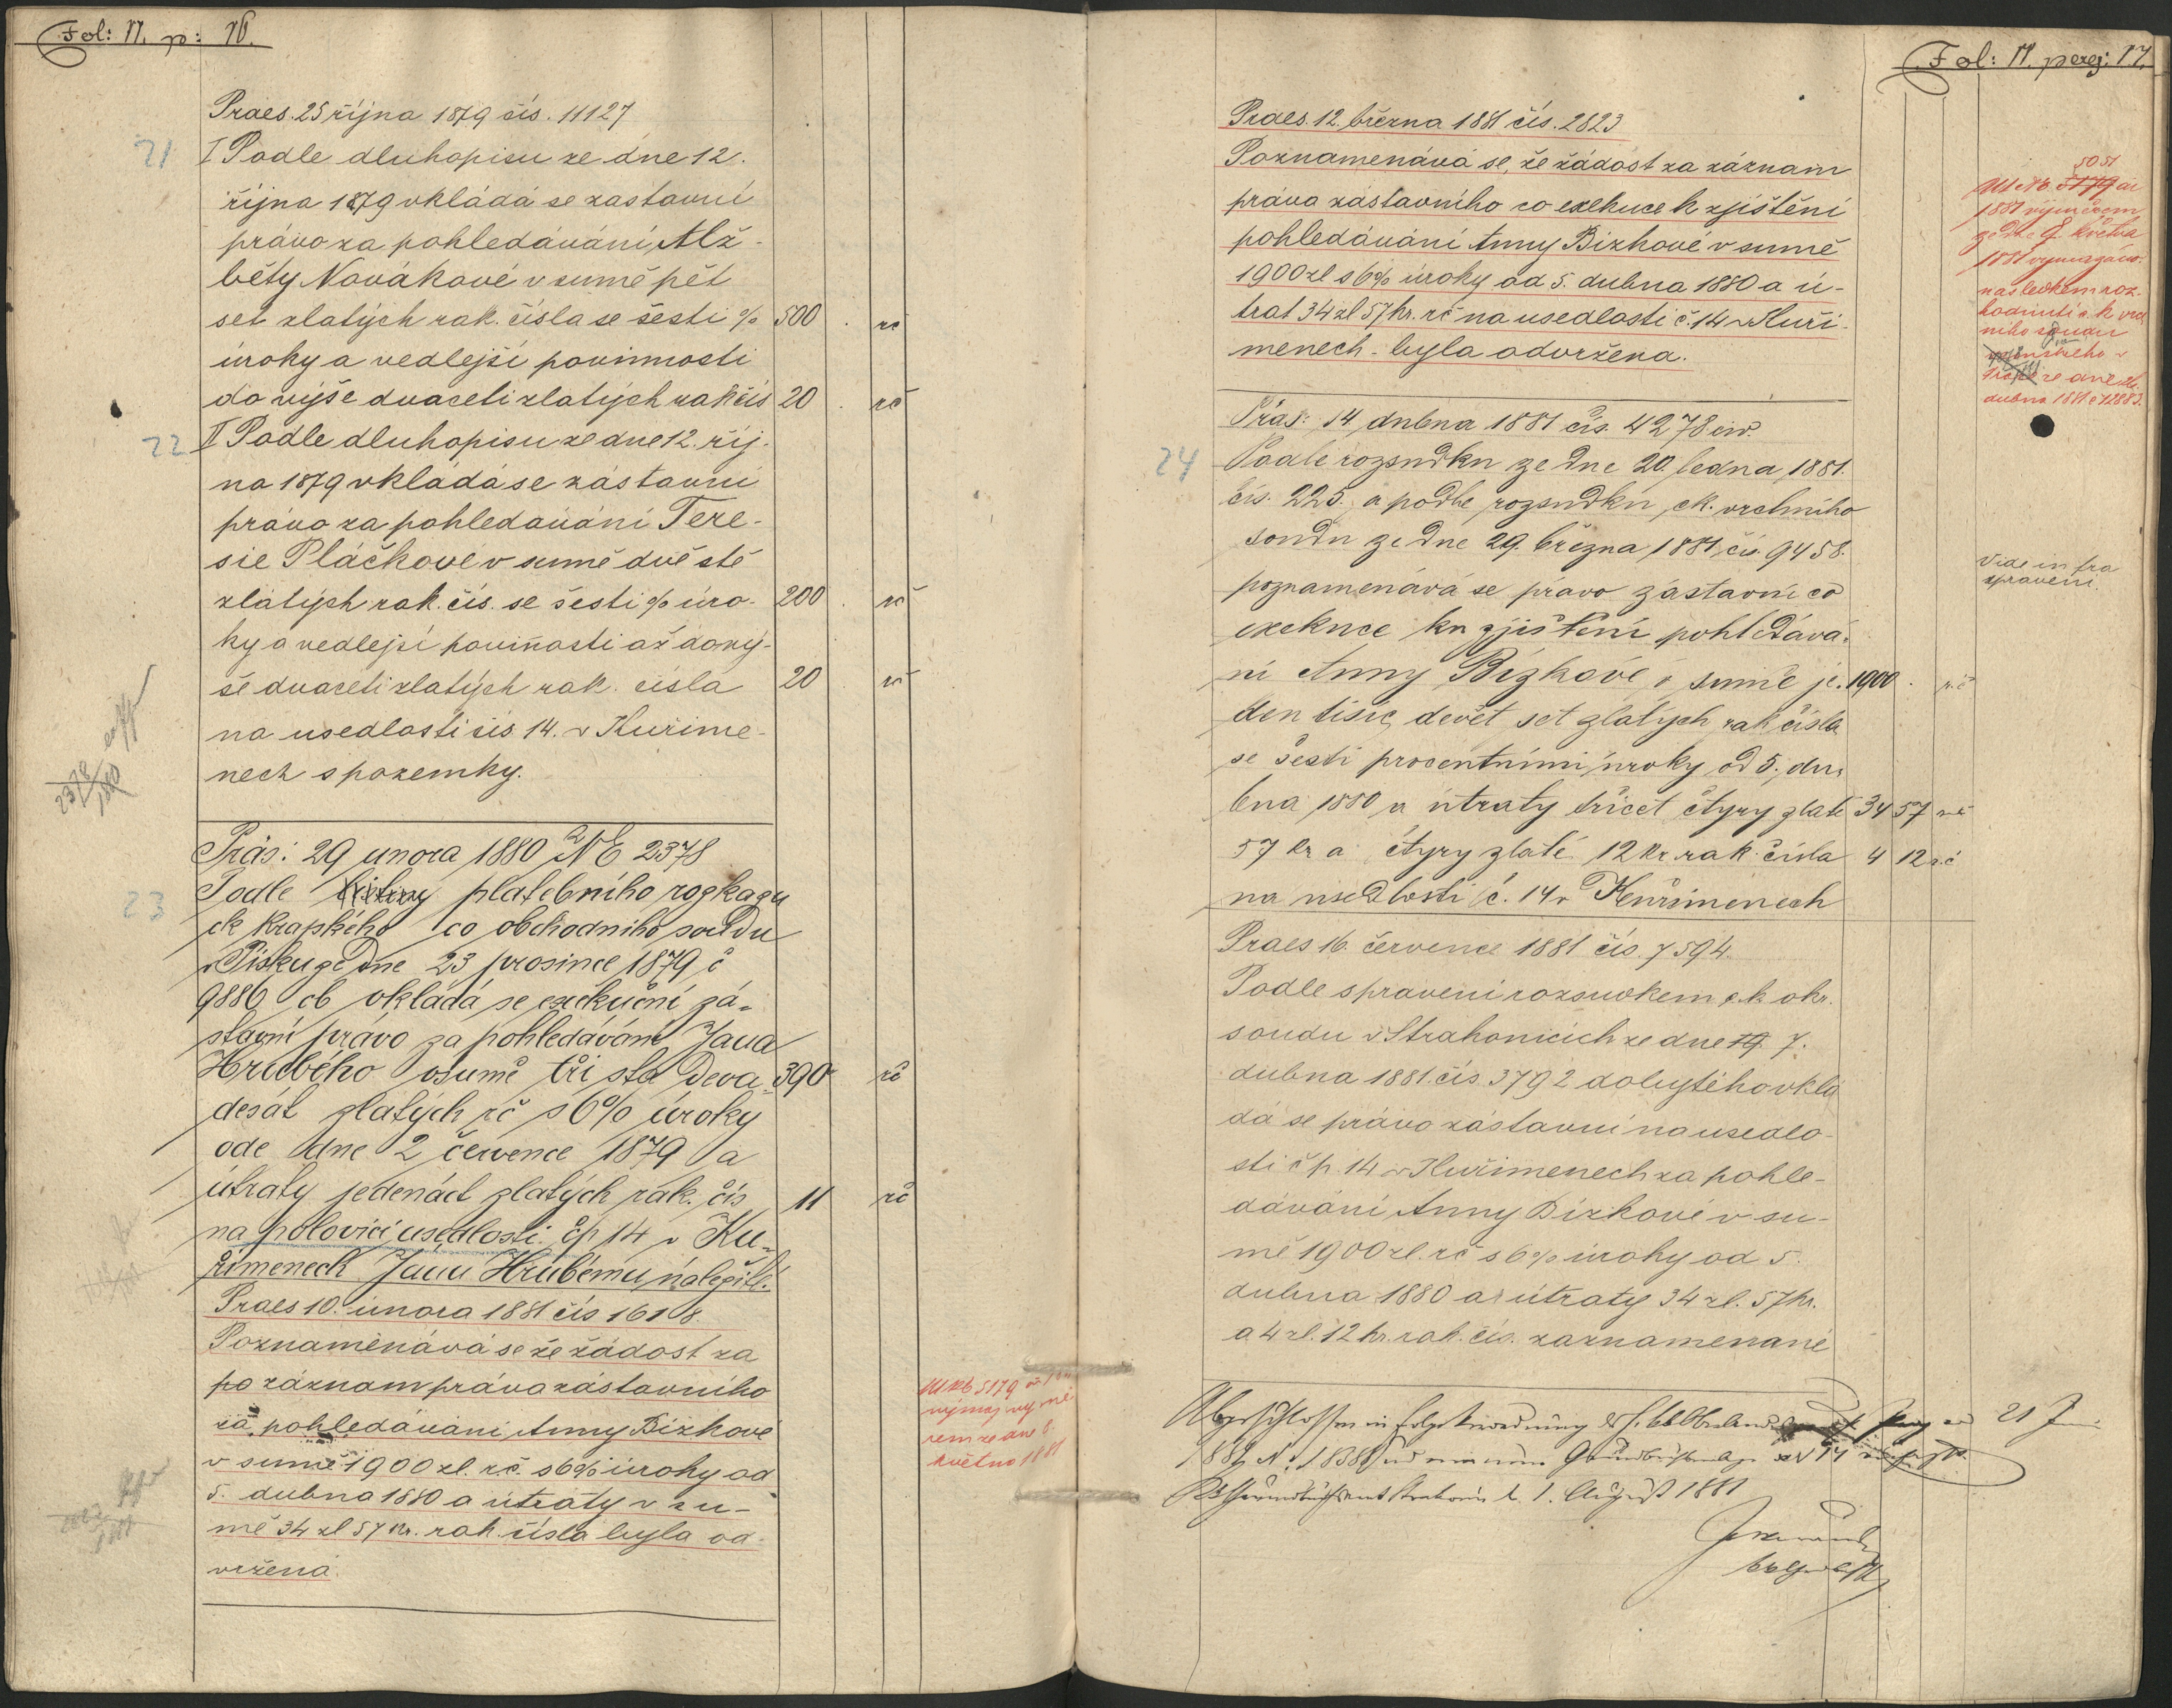 Fol: 11. p: 16.
Praes. 25 října 1879 čís. 11127
21 I Podle dluhopisu ze dne 12.
října 1879 vkládá se zástavní
právo za pohledávání Alž-
běty Novákové v sumě pět
set zlatých rak. čísla se šesti % 500 . rč
úroky a vedlejší povinnosti
do výše dvaceti zlatých rak čís 20 . rč
22 II Podle dluhopisu ze dne 12. říj-
na 1879 vkládá se zástavní
právo za pohledávání Tere-
sie Pláčkové v sumě dvě stě
zlatých rak. čís. se šesti % úro- 200 . rč
ky a vedlejší povinnosti až do vý-
še dvaceti zlatých rak. čísla 20 . rč
na usedlosti čís 14. v Kuříme-
nech s pozemky.
2378/1880
Präs: 29 února 1880 NE 2378
23 Podle listiny platebního rozkazu
ck krajského co obchodního soudu
v Písku ze dne 23 prosince 1879 č
9886 ob vkládá se exekuční zá-
stavní právo za pohledávání Jana
Hrubého v sumě tři sta deva- 390 rč
desát zlatých rč s 6% úroky
ode dne 2 července 1879 a
útraty jedenáct zlatých rak. čís 11 rč
na polovici usedlosti čp 14 v Ku-
řimenech Janu Hrubému náležité.
Praes 10. února 1881 čís 1618.
Poznamenává se že žádost za
po záznam práva zástavního
za pohledávání Anny Bízkové
v sumě 1900 zl. rč. s 6% úroky od
5. dubna 1880 a útraty v su-
mě 34 zl 57 kr. rak. čísla byla od-
vržená.
5179
výmaz vymě
rem ze dne 8.
května 1881
Fol: 11. pag: 17.
Praes. 12. března 1881 čís. 2823
Poznamenává se, že žádost za záznam
práva zástavního co exekuce k zjištění
pohledávání Anny Bízkové v sumě
1900 zl s 6% úroky od 5. dubna 1880 a ú-
trat 34 zl 57 kr. rč na usedlosti č. 14 v Kuří-
menech - byla odvržena.
5051
5179
1881 výměrem
ze dne 8. května
1881 vymazáno.
následkem roz-
hodnutí c. k. vrch
ního soudu
ze dne 26.
dubna 1881 č 12883.
Präs: 14 dubna 1881 čís. 4278 civ.
24 Podle rozsudku ze dne 20. ledna 1881.
čís. 225. a podle rozsudku ck. vrchního
soudu ze dne 29. března 1881 čís. 9458.
poznamenává se právo zástavní co
exekuce ku zjištění pohledává-
ní Anny Bízkové v sumě je- 1900 . rč
den tisíc devět set zlatých rak čísla
se šesti procentními úroky od 5. du-
bna 1880 a útraty třicet čtyry zlaté 34 57 rč
57 kr a čtyry zlaté 12 kr. rak. čísla 4 12 rč
na usedlosti č. 14 v Kuřimenech
Vide infra
spravení.
Praes 16. července 1881 čís. 7594.
Podle spravení rozsudkem c. k. okr.
soudu v Strakonicích ze dne 19. 7.
dubna 1881. čís. 3792 dobytého vklá
dá se právo zástavní na usedlo-
sti čp. 14 v Kuřimenech za pohle-
dávání Anny Bízkové v su-
mě 1900 zl. rč s 6% úroky od 5.
dubna 1880 a útraty 34 zl. 57 kr.
a 4 zl. 12 kr. rak. čís. zaznamenané
Abgeschlossen in Folge Anordnung des h. kk Oberlandes 21
1881 1838
1. August 1881